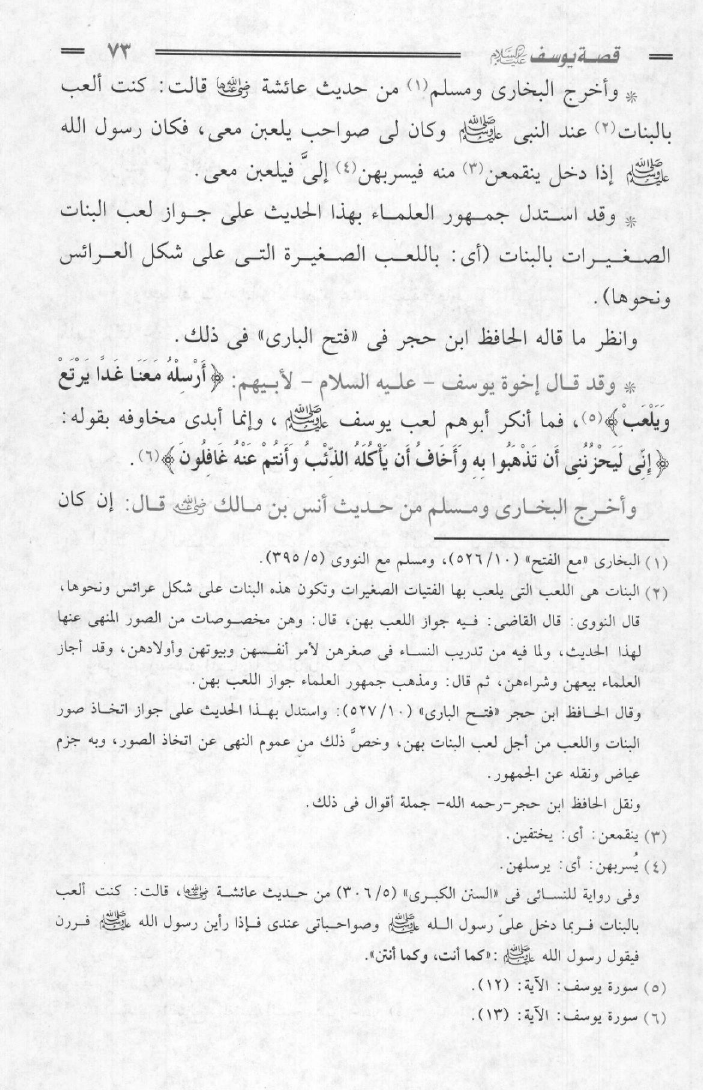 قصة يوسف عليه السلام ٧٣
* وأخرج البخارى ومسلم(١) من حديث عائشة رضي الله عنها قالت: كنت ألعب
بالبنات(٢) عند النبى ﷺ وكان لى صواحب يلعبن معى، فكان رسول الله
ﷺ إذا دخل ينقمعن(٣) منه فيسربهن(٤) إلىَّ فيلعبن معى.
* وقد استدل جمهور العلماء بهذا الحديث على جواز لعب البنات
الصغيرات بالبنات (أى: باللعب الصغيرة التى على شكل العرائس
ونحوها).
وانظر ما قاله الحافظ ابن حجر فى «فتح البارى» فى ذلك.
* وقد قال إخوة يوسف - عليه السلام - لأبيهم: ﴿أَرْسِلْهُ مَعَنَا غَدًا يَرْتَعْ
وَيَلْعَبْ﴾(٥)، فما أنكر أبوهم لعب يوسف ﷺ، وإنما أبدى مخاوفه بقوله:
﴿إِنِّى لَيَحْزُنُنِى أَن تَذْهَبُوا بِهِ وَأَخَافُ أَن يَأْكُلَهُ الذِّئْبُ وَأَنتُمْ عَنْهُ غَافِلُونَ﴾(٦).
وأخرج البخارى ومسلم من حديث أنس بن مالك رضي الله عنه قال: إن كان
(١) البخارى «مع الفتح» (١٠/ ٥٢٦)، ومسلم مع النووى (٥/ ٣٩٥).
(٢) البنات هى اللعب التى يلعب بها الفتيات الصغيرات وتكون هذه البنات على شكل عرائس ونحوها،
قال النووى: قال القاضى: فيه جواز اللعب بهن، قال: وهن مخصوصات من الصور المنهى عنها
لهذا الحديث، ولما فيه من تدريب النساء فى صغرهن لأمر أنفسهن وبيوتهن وأولادهن، وقد أجاز
العلماء بيعهن وشراءهن، ثم قال: ومذهب جمهور العلماء جواز اللعب بهن.
وقال الحافظ ابن حجر «فتح البارى» (١٠/ ٥٢٧): واستدل بهذا الحديث على جواز اتخاذ صور
البنات واللعب من أجل لعب البنات بهن، وخصَّ ذلك من عموم النهى عن اتخاذ الصور، وبه جزم
عياض ونقله عن الجمهور.
ونقل الحافظ ابن حجر-رحمه الله- جملة أقوال فى ذلك.
(٣) ينقمعن: أى: يختفين.
(٤) يُسربهن: أى: يرسلهن.
وفى رواية للنسائى فى «السنن الكبرى» (٥/ ٣٠٦) من حديث عائشة رضي الله عنها، قالت: كنت ألعب
بالبنات فربما دخل علىّ رسول الله ﷺ وصواحباتى عندى فإذا رأين رسول الله ﷺ فررن
فيقول رسول الله ﷺ: «كما أنت، وكما أنتن».
(٥) سورة يوسف: الآية: (١٢).
(٦) سورة يوسف: الآية: (١٣).